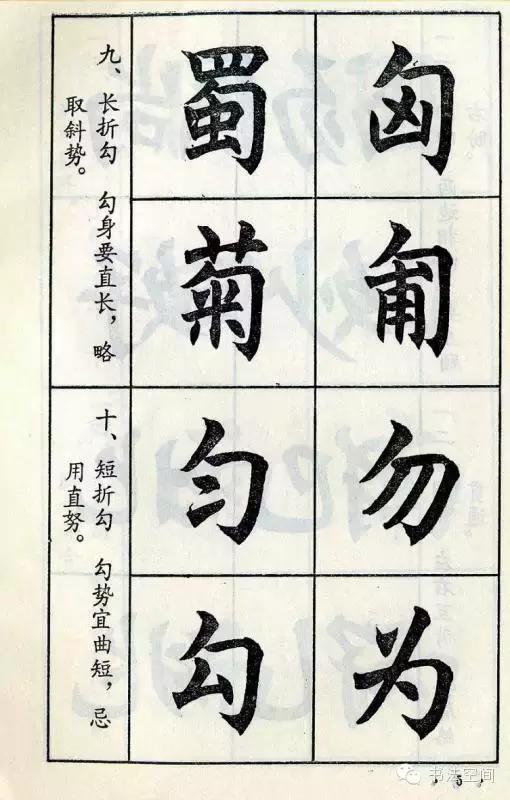 九、长折勾 勾身要直长，略
取斜势。
匈
匍
蜀
菊
十、短折勾 勾势宜曲短，忌
用直努。
勿
为
匀
勾
5
书法空间